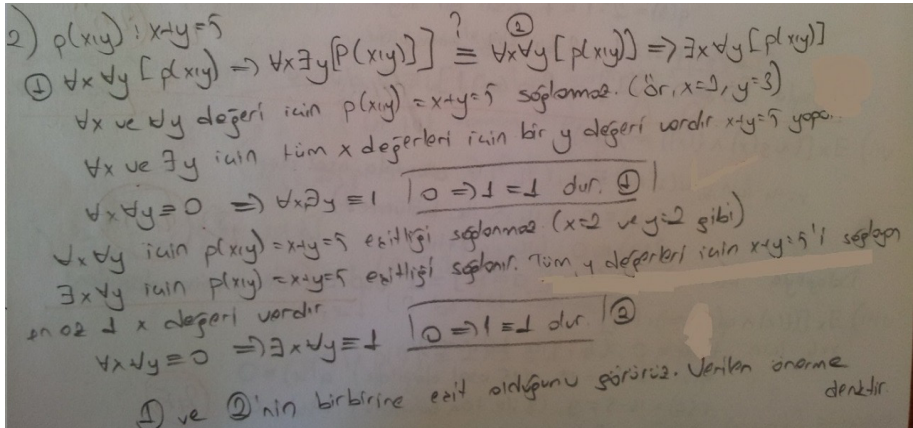 2) p(x,y) : x+y=5
① ∀x ∀y [p(x,y) => ∀x∃y[P(x,y)]] ≡? ② ∀x∀y [p(x,y)] => ∃x∀y [p(x,y)]
∀x ve ∀y değeri için p(x,y) = x+y=5 sağlanmaz. (ör, x=1, y=3)
∀x ve ∃y için tüm x değerleri için bir y değeri vardır x+y=5 yapa..
∀x∀y≡0 => ∀x∃y ≡1 0 =>1 ≡1 dur. ①
∀x∀y için p(x,y)=x+y=5 eşitliği sağlanmaz. (x=2 ve y=2 gibi)
∃x∀y için p(x,y)=x+y=5 eşitliği sağlanır. Tüm y değerleri için x+y=5'i sağlayan
en az 1 x değeri vardır
∀x∀y≡0 =>∃x∀y≡1 0 =>1≡1 dur ②
① ve ②'nin birbirine eşit olduğunu görürüz. Verilen önerme
denktir.